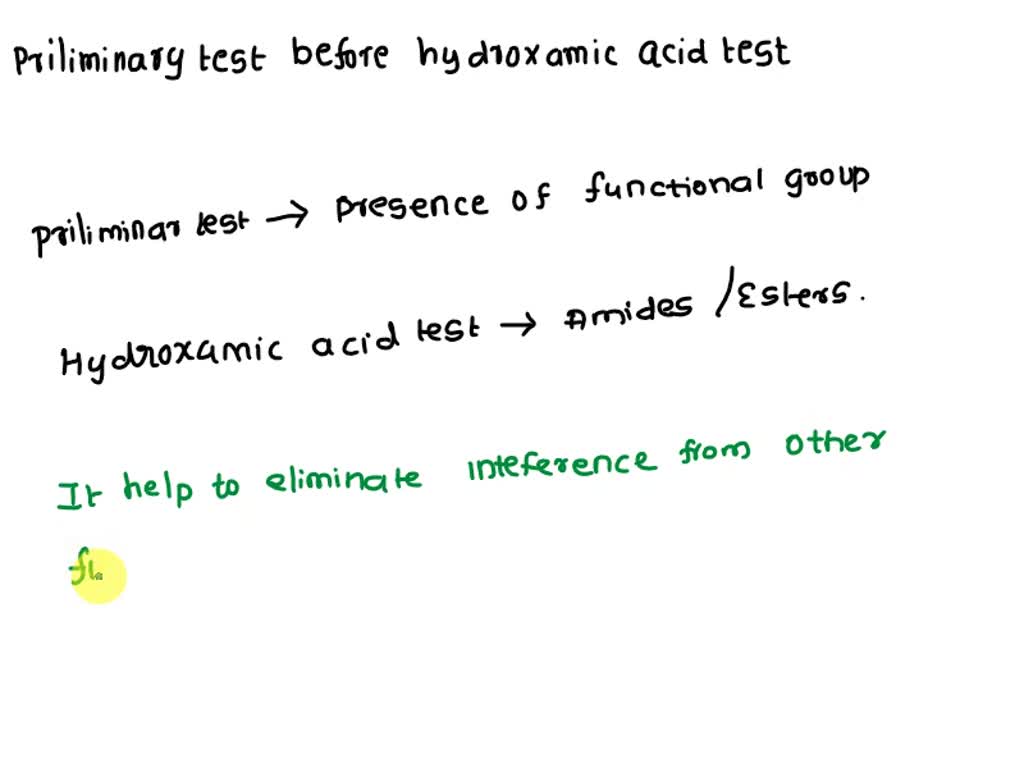 Priliminary test before hydroxamic acid test
Priliminar test → Presence of functional group
Hydroxamic acid test → Amides / Esters.
It help to eliminate inteference from other
fu